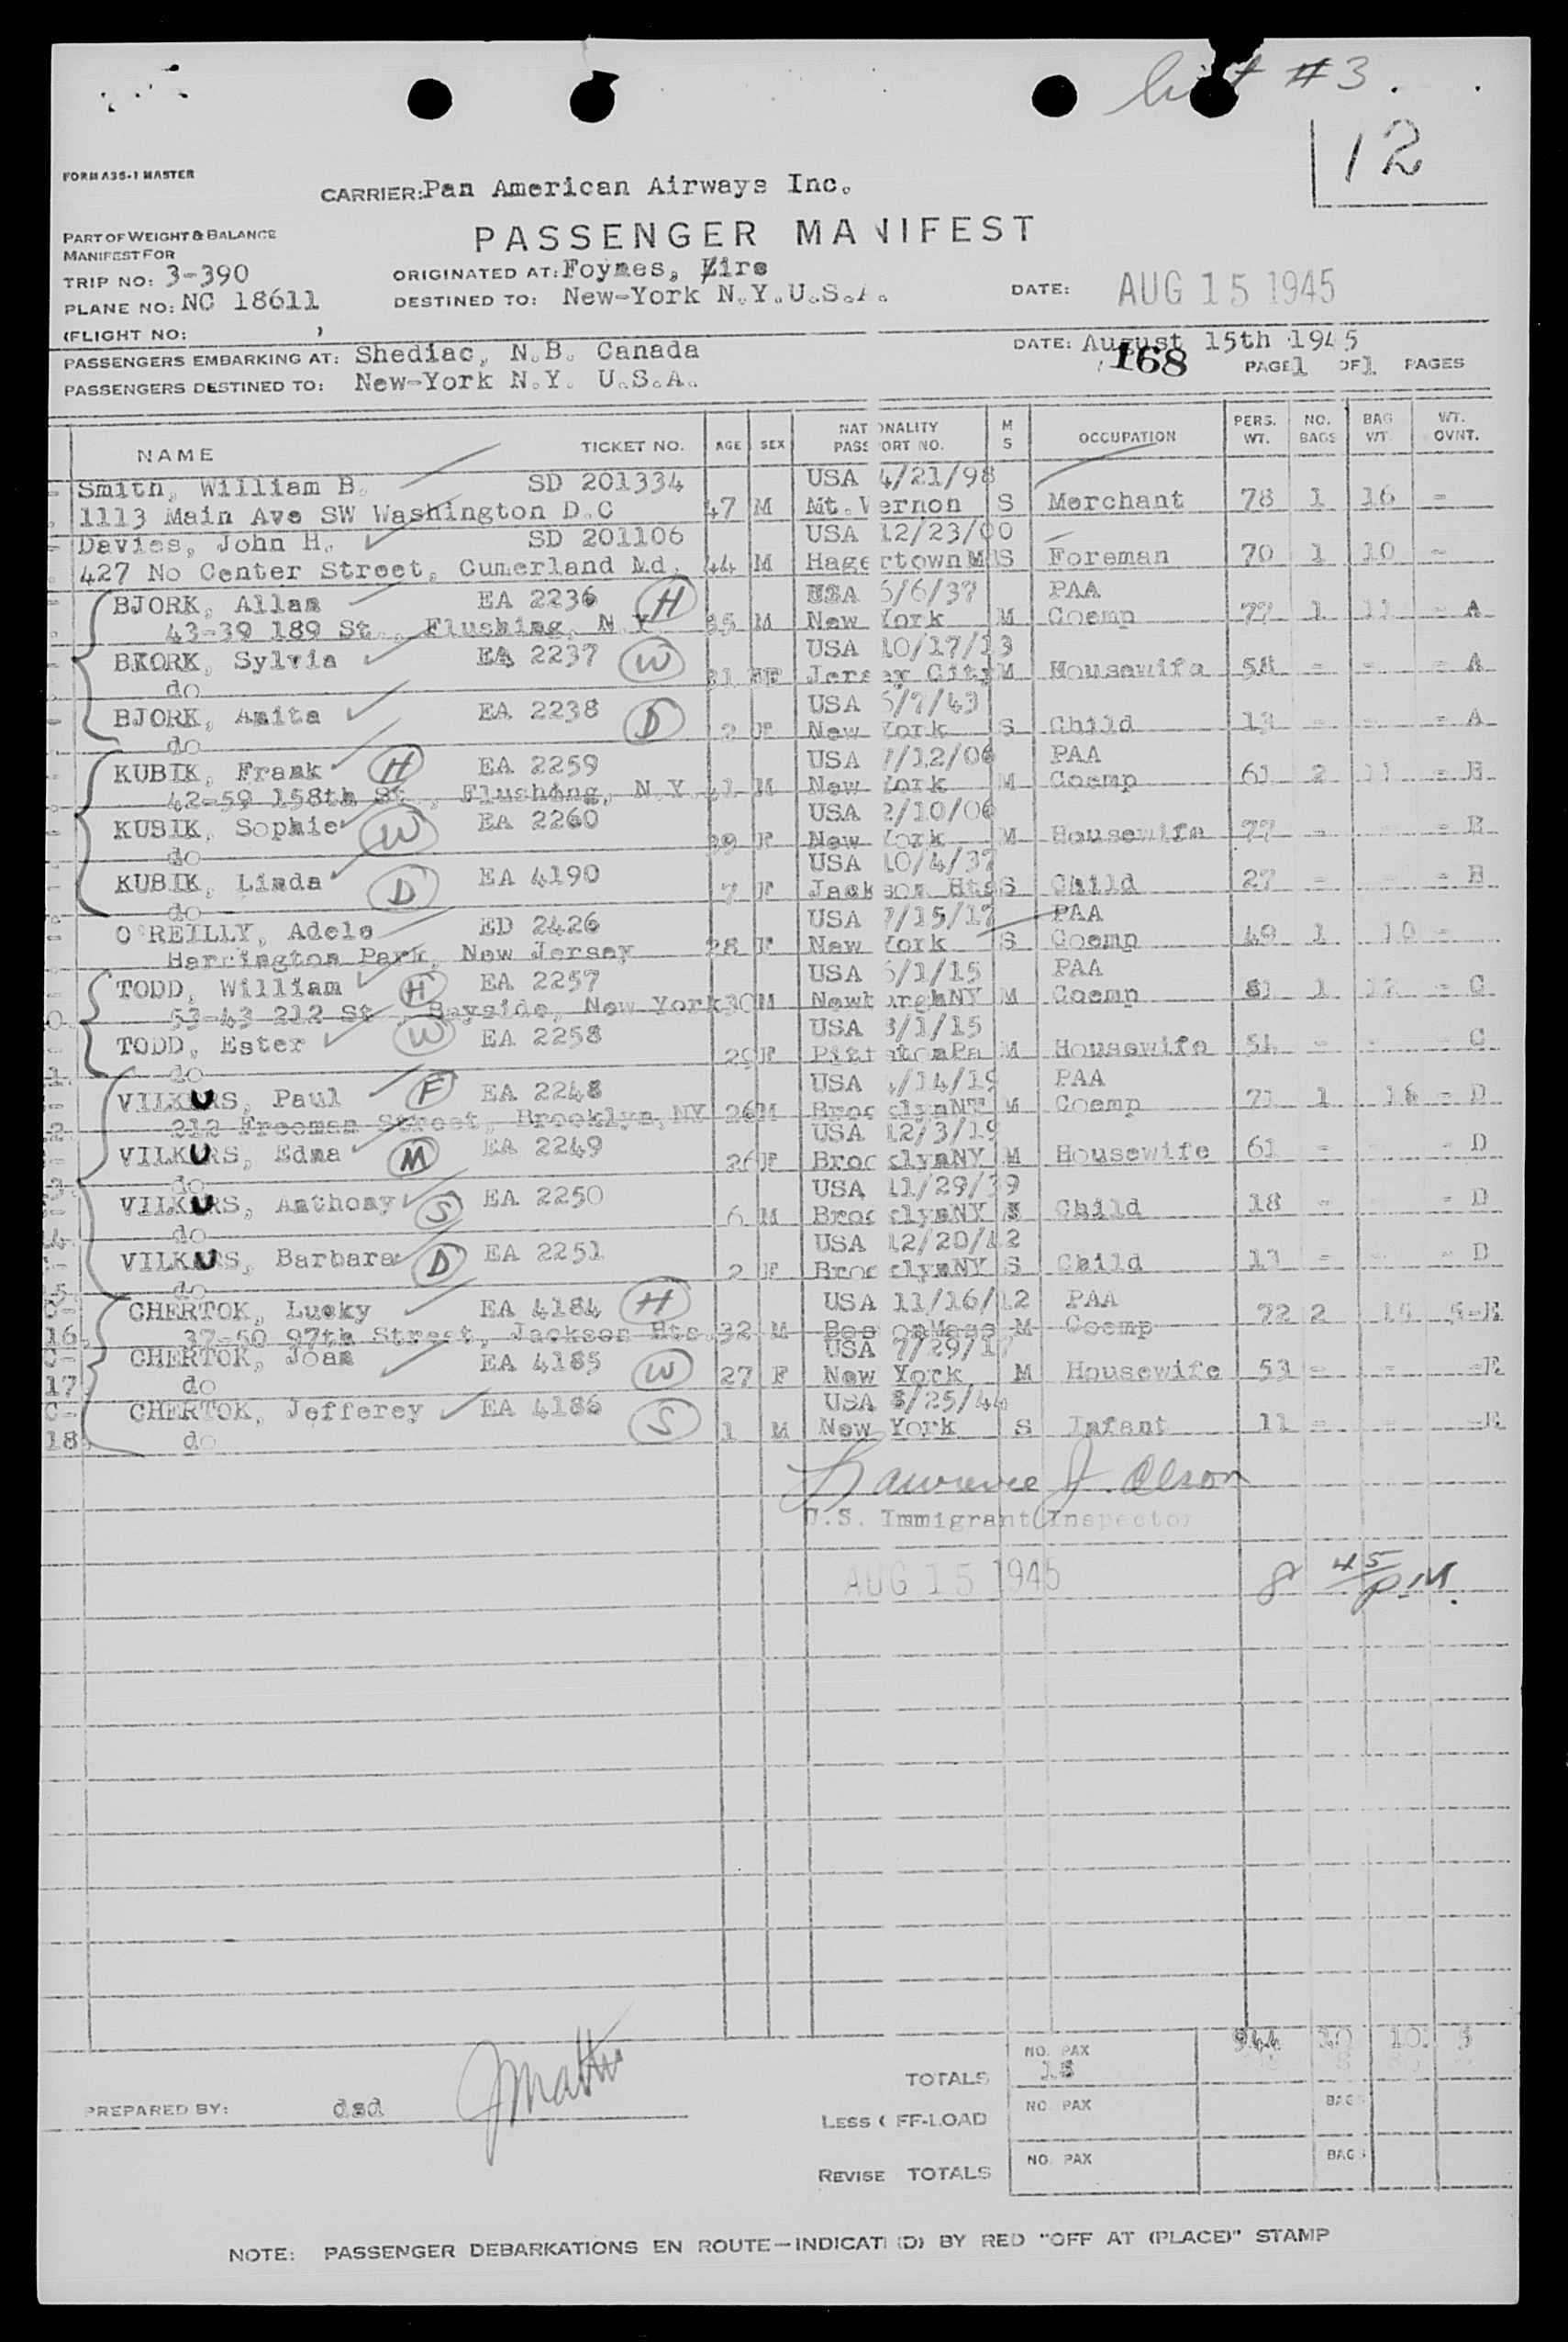 list #3.
12
FORM A36-1 MASTER
CARRIER: Pan American Airways Inc.
PART OF WEIGHT & BALANCE
MANIFEST FOR
PASSENGER MANIFEST
TRIP NO: 3-390
ORIGINATED AT: Foynes, Eire
PLANE NO: NC 18611
DESTINED TO: New-York N.Y.U.S.A.
DATE: AUG 15 1945
(FLIGHT NO: )
PASSENGERS EMBARKING AT: Shediac, N.B. Canada
DATE: August 15th 1945
PASSENGERS DESTINED TO: New-York N.Y. U.S.A.
168 PAGE 1 OF 1 PAGES
NAME TICKET NO. AGE SEX NATIONALITY PASSPORT NO. M S OCCUPATION PERS. WT. NO. BAGS BAG WT. WT. OVNT.
Smith, William B. SD 201334 USA 4/21/98
1113 Main Ave SW Washington D.C 47 M Mt.Vernon S Merchant 78 1 16 -
Davies, John H. SD 201106 USA 12/23/00
427 No Center Street, Cumerland Md. 44 M Hagertown Md S Foreman 70 1 10 -
BJORK, Allan EA 2236 H USA PAA
43-39 189 St., Flushing, N.Y. 35 M New York M Coemp 77 1 11 - A
BKORK, Sylvia EA 2237 W USA 10/17/13
do 31 F Jersey City M Housewife 58 - - - A
BJORK, Anita EA 2238 D USA 5/7/43
do 2 F New York S Child 13 - - - A
KUBIK, Frank H EA 2259 USA 7/12/06 PAA
42-59 158th St., Flushing, N.Y. 41 M New York M Coemp 61 2 11 - B
KUBIK, Sophie W EA 2260 USA 2/10/06
do 39 F New York M Housewife 77 - - - B
KUBIK, Linda D EA 4190 USA 10/4/37
do 7 F Jackson Hts S Child 27 - - - B
O'REILLY, Adele ED 2426 USA 7/15/17 PAA
Harrington Park, New Jersey 28 F New York S Coemp 49 1 10 -
TODD, William H EA 2257 USA 5/1/15 PAA
53-43 212 St., Bayside, New York 30 M NewburghNY M Coemp 81 1 12 - C
TODD, Ester W EA 2258 USA 8/1/15
do 29 F PittstonPa M Housewife 54 - - - C
VILKURS, Paul F EA 2248 USA 4/14/19 PAA
212 Freeman Street, Brooklyn, NY 26 M BrooklynNY M Coemp 71 1 18 - D
VILKURS, Edna M EA 2249 USA 12/3/19
do 26 F BrooklynNY M Housewife 61 - - - D
VILKURS, Anthony S EA 2250 USA 11/29/39
do 6 M BrooklynNY S Child 18 - - - D
VILKURS, Barbara D EA 2251 USA 12/20/42
do 2 F BrooklynNY S Child 13 - - - D
CHERTOK, Lucky EA 4184 H USA 11/16/12 PAA
16. 37-50 97th Street, Jackson Hts 32 M BostonMass M Coemp 72 2 15 5-E
CHERTOK, Joan EA 4185 W USA 7/29/17
17 do 27 F New York M Housewife 53 - - -E
CHERTOK, Jefferey EA 4186 S USA 8/25/44
18 do 1 M New York S Infant 11 - - -E
Lawrence J. Olson
U.S. Immigrant Inspector
AUG 15 1945
8 45 PM.
TOTALS NO. PAX 18 944 10 5
PREPARED BY: dsd
LESS OFF-LOAD NO. PAX BAGS
REVISE TOTALS NO. PAX BAGS
NOTE: PASSENGER DEBARKATIONS EN ROUTE—INDICATE(D) BY RED "OFF AT (PLACE)" STAMP